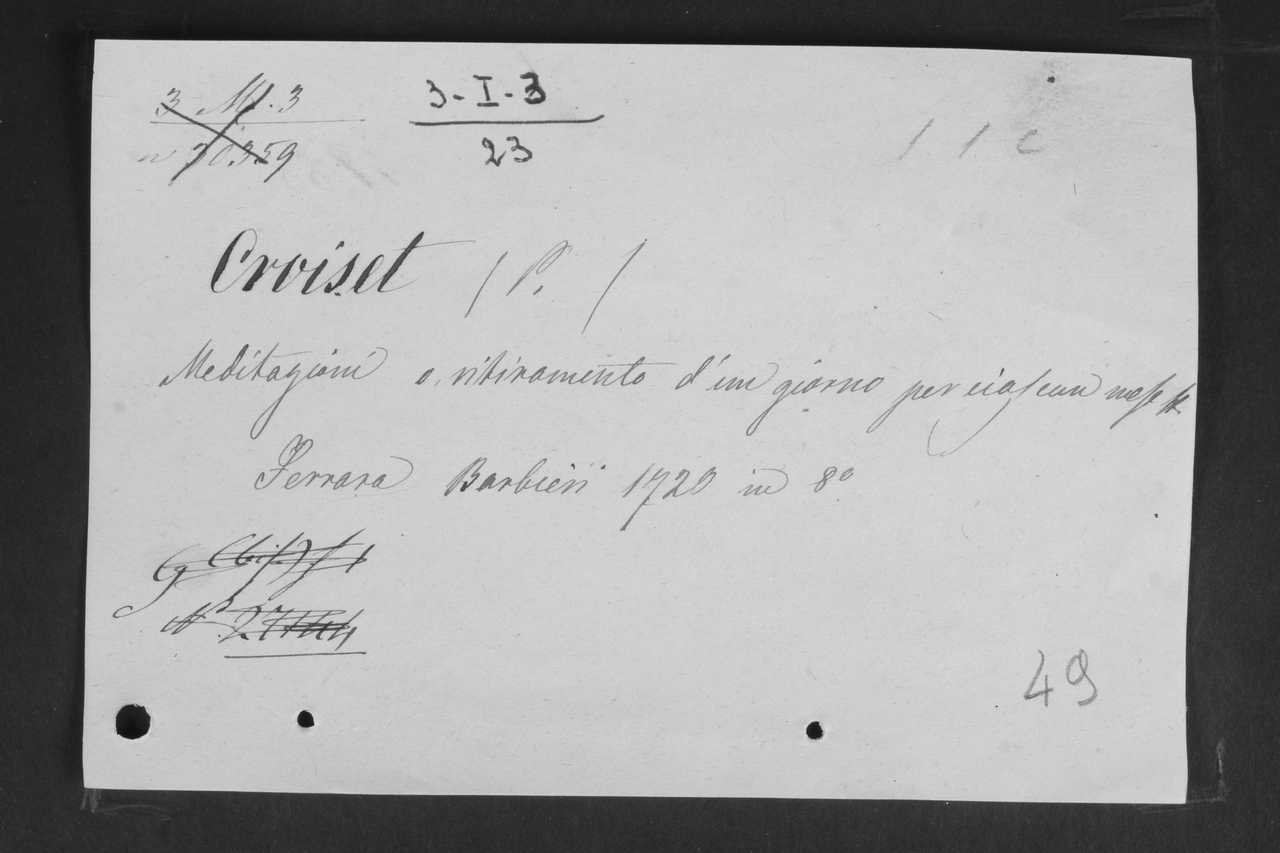 3 M. 3
n 70.359
3-I-3
23
1 1 c
Croiset (P.)
Meditazioni o ritiramento d'un giorno per ciascun mese
Ferrara Barbieri 1720 in 8º
Nº 27144
49